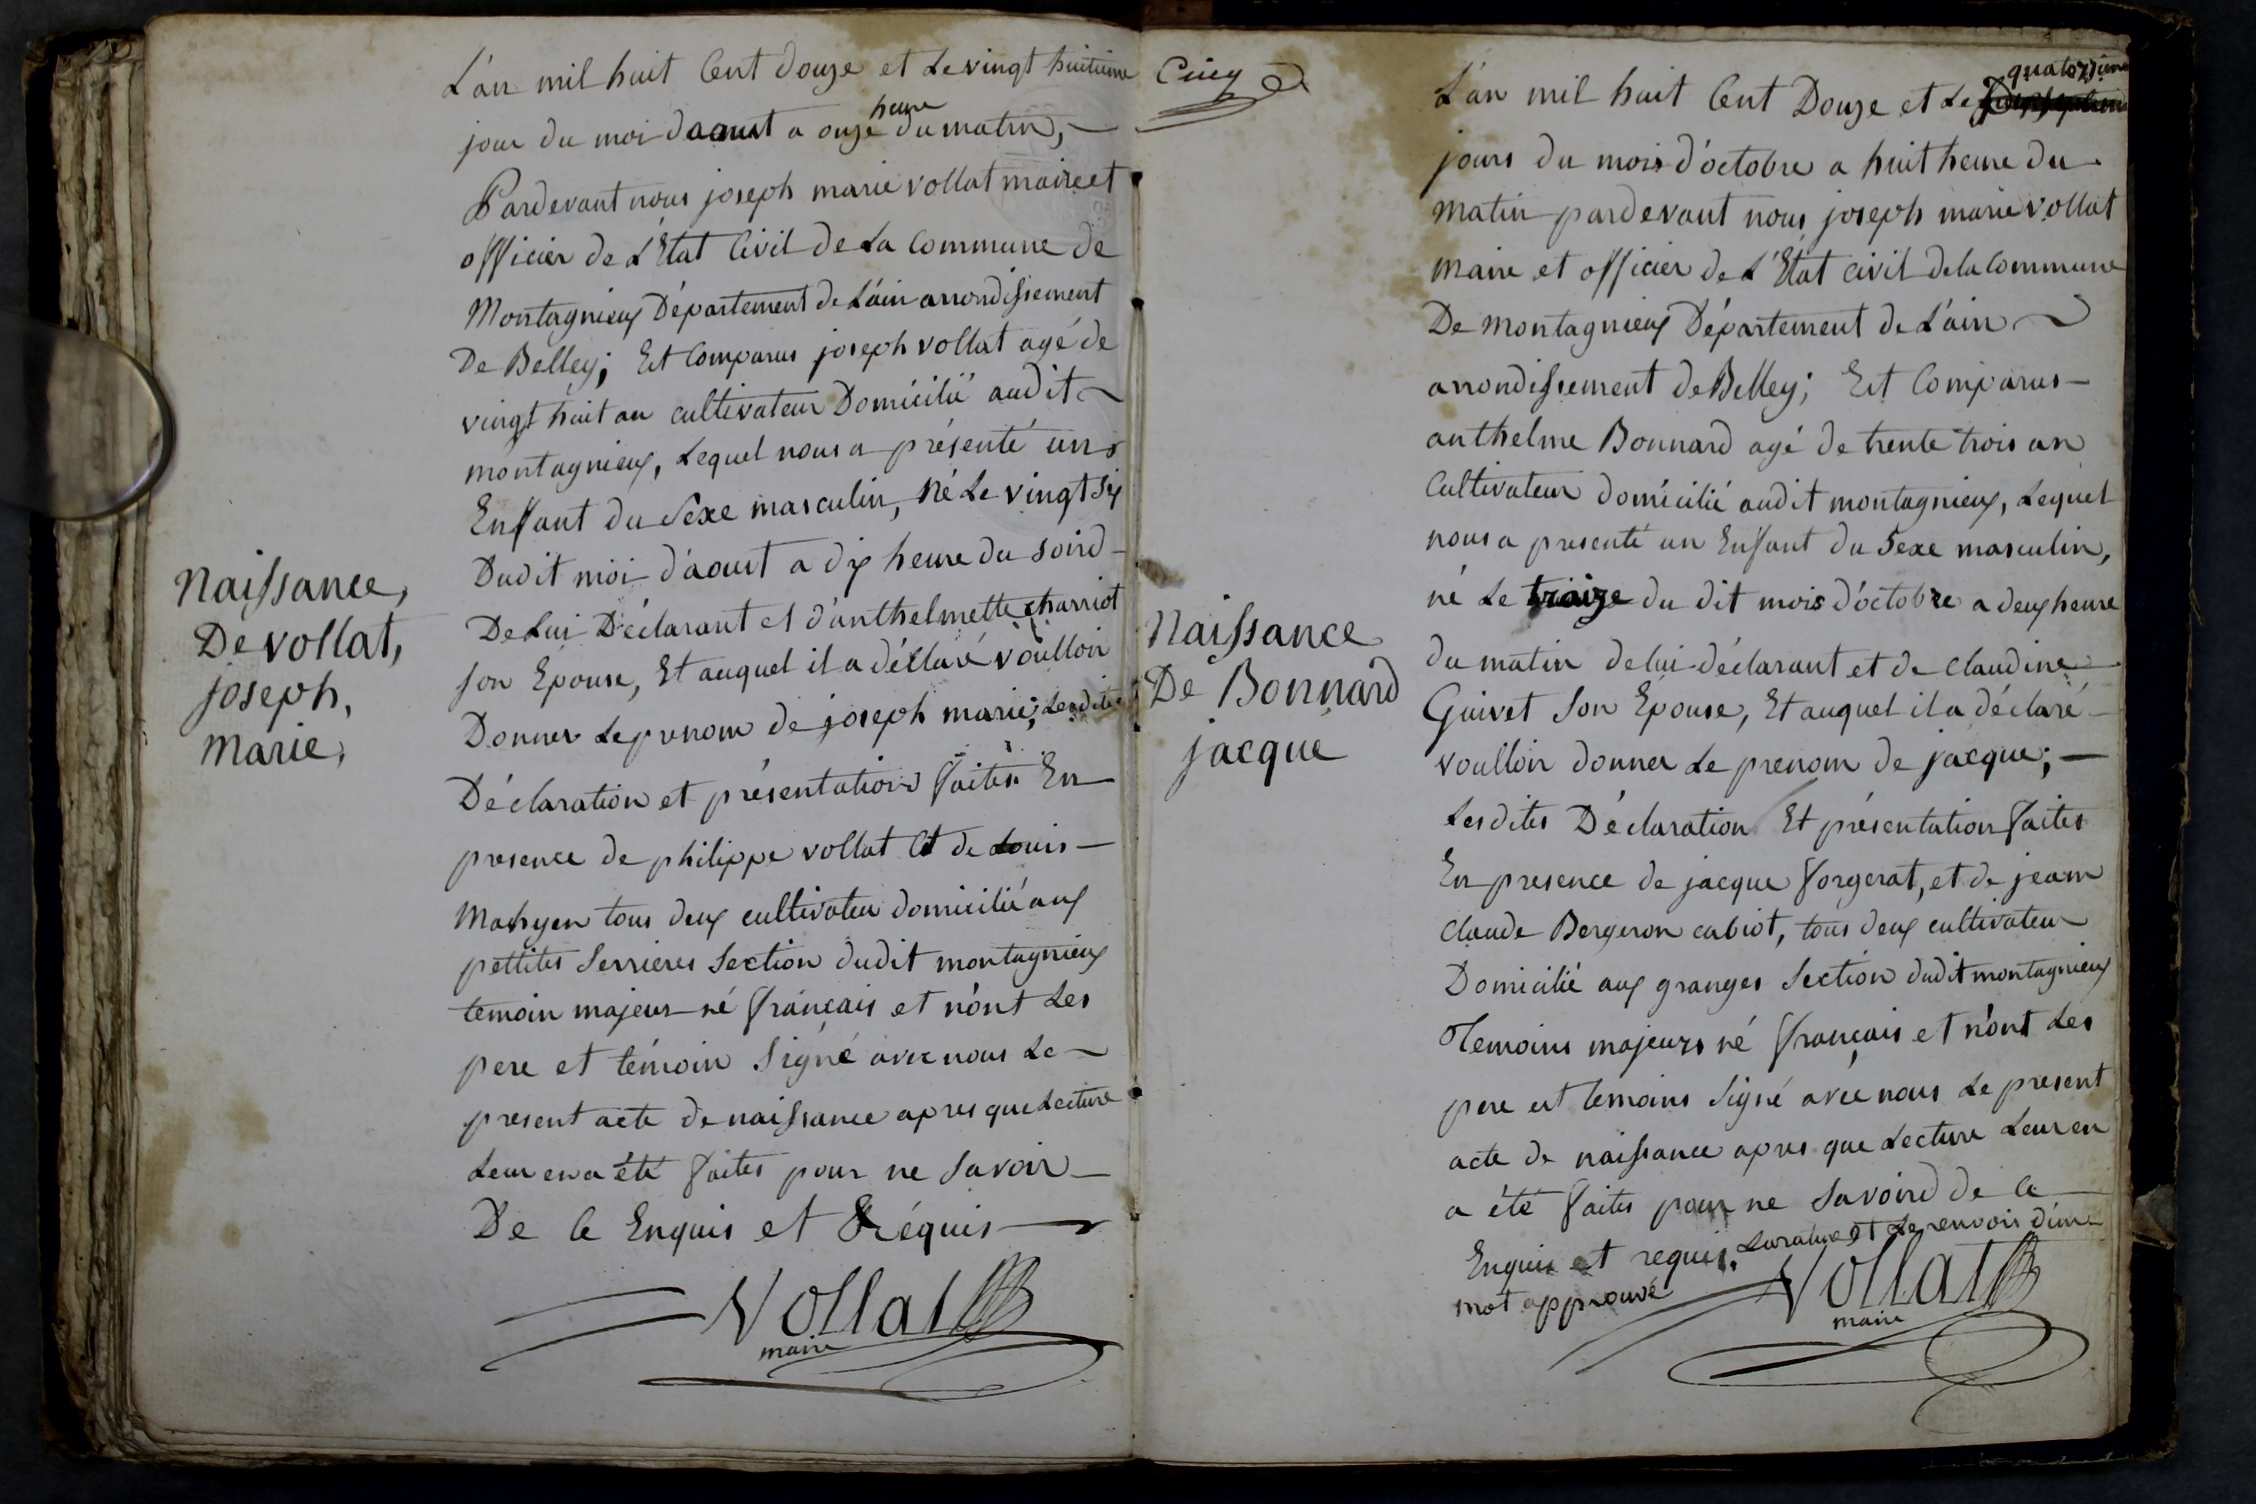 L'an mil huit Cent douze et le vingt huitieme
heure
jour du moi daoust a onze du matin,
Pardevant nous joseph marie vollat maire et
officier de L'Etat Civil de La Commune de
Montagnieux Département de L'ain arrondissement
De Belley; Est Comparus joseph vollat agé de
vingt huit an cultivateur Domicilié audit
montagnieux, Lequel nous a présenté un
Enffant du Sexe masculin, Né Le vingt six
Dudit moi d'aoust a dix heure du soird
De Lui Déclarant et d'anthelmette charriot
son Epouse, Et auquel il a déclaré voulloir
Donner Le prenom de joseph marie; Lesdites
Déclaration et présentation faites En
presence de philippe vollat Et de Louis
Mahyen tous deux cultivateur domicilié aux
pettites Serrieres Section dudit montagnieux
temoin majeur né français et n'ont Les
pere et témoin Signé avec nous Le
present acte de naissance apres que Lecture
Leur en a été faites pour ne Savoir
De Ce Enquis et Réquis
Vollat
maire
Naissance,
De vollat,
joseph,
Marie,
Cinq
quatorzieme
L'an mil huit Cent Douze et Le
jours du mois d'octobre a huit heure du
Matin pardevant nous joseph marie vollat
Maire et officier de L'Etat civil de la Commune
De Montagnieux Département de L'ain
arrondissement de Belley; Est Comparus
anthelme Bonnard agé de trente trois an
Cultivateur domicilié audit montagnieux, Lequel
nous a presenté un Enffant du Sexe masculin,
né Le traize du dit mois d'octobre a deux heure
du matin de lui déclarant et de claudine
Guivet Son Epouse, Et auquel il a déclaré
voulloir donner Le prenom de jacque;
Lesdites Déclaration Et présentation faites
En presence de jacque forgerat, et de jean
Claude Bergeron cabiot, tous deux cultivateur
Domicilié aux granges Section dudit montagnieux
Temoins majeurs né français et n'ont Les
pere et temoins Signé avec nous Le present
acte de naissance apres que Lecture Leur en
a été faites pour ne Savoird de Ce
Enquis et requis. La rature et Le renvois d'un
mot approuvé
Vollat
maire
Naissance
De Bonnard
jacque